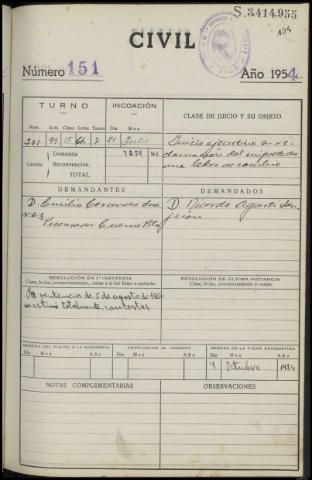 S.3.414.955
104
CIVIL
Número 151
Año 1954
TURNO
INCOACIÓN
CLASE DE JUICIO Y SU OBJETO
Núm. Acto Clase Letra Turno Día Mes
301 99 15 7 21 Julio
Juicio ejecutivo en re-
clamación del importe de
una letra de cambio
Demanda
Cuantía Reconvención
TOTAL
DEMANDANTES
DEMANDADOS
D. Emilio
D. Ricardo
Procurador
RESOLUCIÓN EN 1.ª INSTANCIA
Clase, fecha, pronunciamiento, costas y si fué firme o apelada.
RESOLUCIÓN DE ÚLTIMA INSTANCIA
Clase, fecha, pronunciamiento, y costas
Por sentencia de 5 de agosto de 1954
se estimó totalmente, con costas
REMESA DEL PLEITO A LA AUDIENCIA
DEVOLUCIÓN AL JUZGADO
REMESA DE LA FICHA ESTADÍSTICA
Día Mes Año Día Mes Año Día Mes Año
9 Octubre 1954
NOTAS COMPLEMENTARIAS
OBSERVACIONES